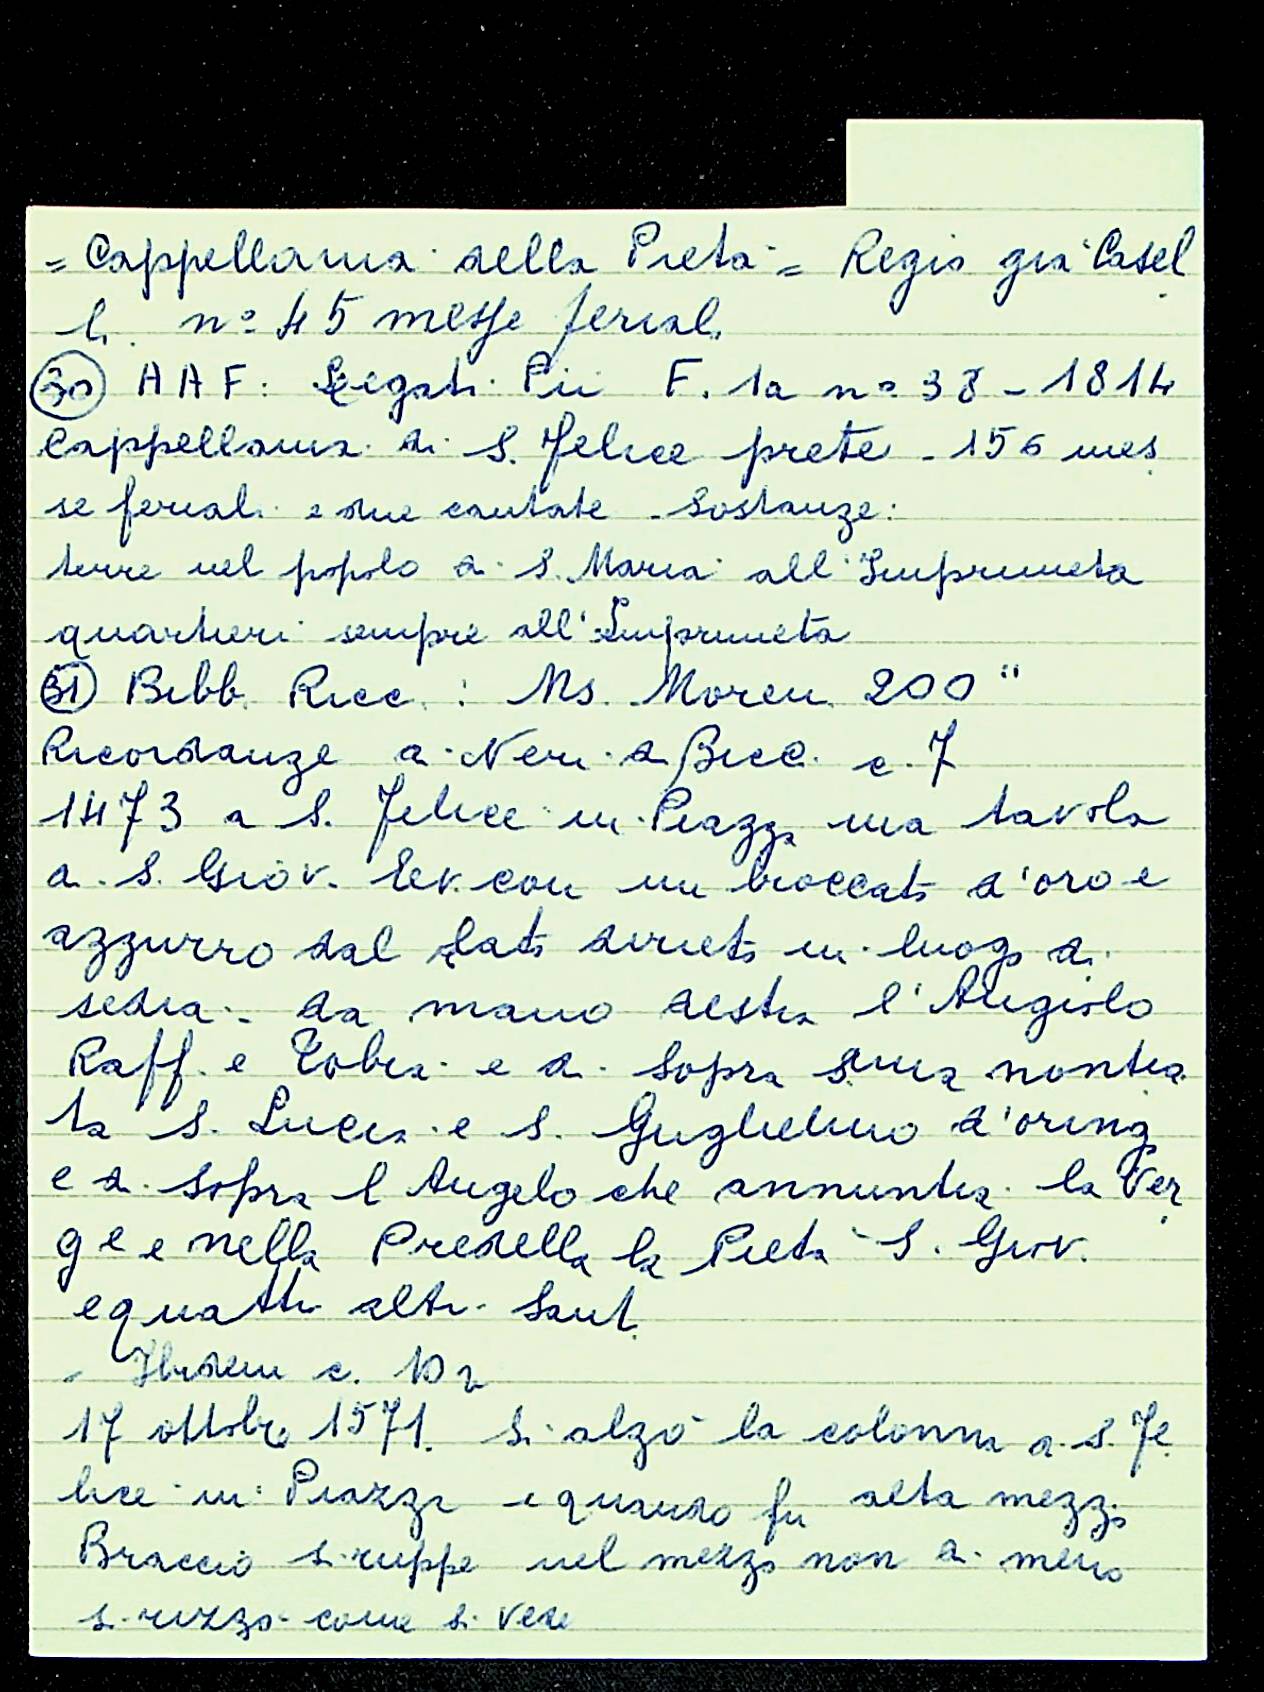 = Cappellania della Pietà = Regio già Casel
li n° 45 messe feriali
30 AAF: Legati Pii F. 1a n° 38 - 1814
Cappellania di S. Felice prete - 156 mes
se feriali e due cantate - Sostanze:
terre nel popolo di S. Maria all'Impruneta
quartieri sempre all'Impruneta
31 Bibb. Ricc.: Ms. Moreni 200"
Ricordanze di Neri di Bicci c. 7
1473 a S. Felice in Piazza una tavola
di S. Giov. Ev. con un broccato d'oro e
azzurro dal lato diricto in luogo di
sedia - da mano destra l'Angiolo
Raff. e Tobia e di sopra nontia
ta S. Lucia e S. Guglielmo d'oringa
e di sopra l'Angelo che annuntia la Ver
ge e nella Predella la Pietà S. Giov.
e quattro altri Santi
- Ibidem c. 10
17 ottobre 1571. Si alzò la colonna di S. Fe
lice in Piazza e quando fu alta mezzo
Braccio si ruppe nel mezzo non di meno
si rizzò come si vede